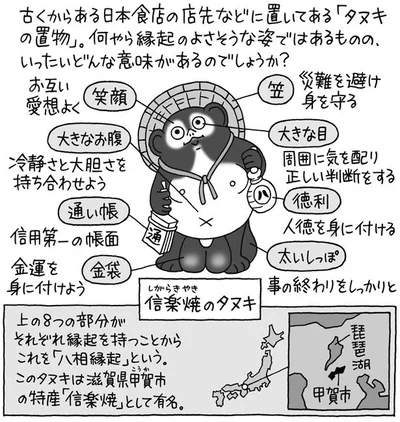 古くからある日本食店の店先などに置いてある「タヌキ
の置物」。何やら縁起のよさそうな姿ではあるものの、
いったいどんな意味があるのでしょうか?
笑顔
お互い
愛想よく
笠
災難を避け
身を守る
大きなお腹
冷静さと大胆さを
持ち合わせよう
大きな目
周囲に気を配り
正しい判断をする
通い帳
信用第一の帳面
徳利
人徳を身に付ける
金袋
金運を
身に付けよう
太いしっぽ
事の終わりをしっかりと
通
八
しがらきやき
信楽焼のタヌキ
上の8つの部分が
それぞれ縁起を持つことから
これを「八相縁起」という。
こうか
このタヌキは滋賀県甲賀市
の特産「信楽焼」として有名。
琵琶湖
甲賀市